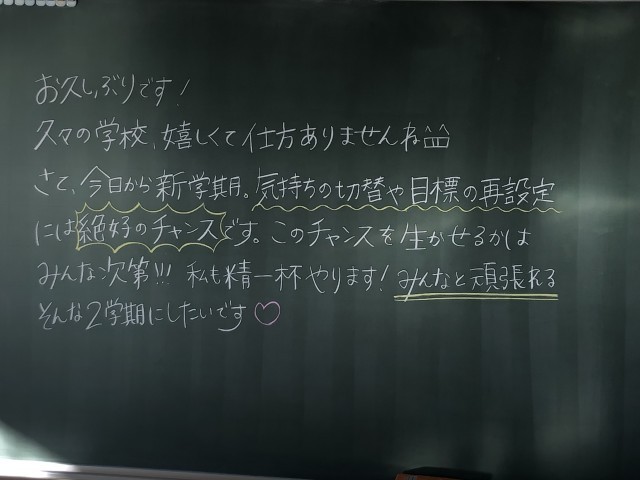 お久しぶりです!
久々の学校、嬉しくて仕方ありませんね
さて、今日から新学期。気持ちの切替や目標の再設定
には絶好のチャンスです。このチャンスを生かせるかは
みんな次第!!! 私も精一杯やります! みんなと頑張れる
そんな2学期にしたいです♡